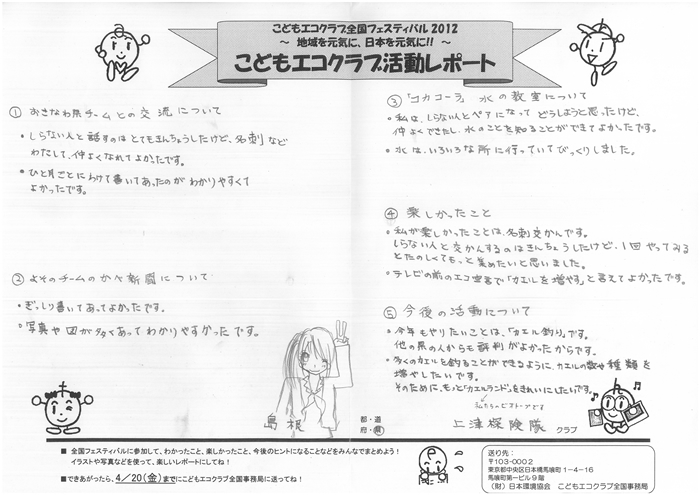 こどもエコクラブ全国フェスティバル2012
～ 地域を元気に、日本を元気に!! ～
こどもエコクラブ活動レポート
① おきなわ県チームとの交流について
・しらない人と話すのはとてもきんちょうしたけど、名刺などわたして、仲よくなれてよかったです。
・ひと月ごとにわけて書いてあったのがわかりやすくて
よかったです。
② よそのチームのかべ新聞について
・ぎっしり書いてあってよかったです。
・写真や図が多くあってわかりやすかったです。
③「コカコーラ」水の教室について
・私は、しらない人とペアになってどうしようと思ったけど、
仲よくできたし、水のことを知ることができてよかったです。
・水は、いろいろな所に行っていてびっくりしました。
④ 楽しかったこと
・私が楽しかったことは、名刺交かんです。
しらない人と交かんするのはきんちょうしたけど、1回やってみる
とたのしくてもっと集めたいと思いました。
・テレビの前のエコ宣言で「カエルを増やす」と言えてよかったです。
⑤ 今後の活動について
・今年もやりたいことは、「カエル釣り」です。
他の県の人からも評判がよかったからです。
・多くのカエルを釣ることができるように、カエルの数や種類を
増やしたいです。
そのために、もっと「カエルランド」をきれいにしたいです。
私たちのビオトープです
島根
都・道
府・県
上津探険隊 クラブ
■ 全国フェスティバルに参加して、わかったこと、楽しかったこと、今後のヒントになることなどをみんなでまとめよう!
イラストや写真などを使って、楽しいレポートにしてね!
■できあがったら、4/20(金)までにこどもエコクラブ全国事務局に送ってね!
送り先:
〒103-0002
東京都中央区日本橋馬喰町1-4-16
馬喰町第一ビル9階
(財)日本環境協会 こどもエコクラブ全国事務局